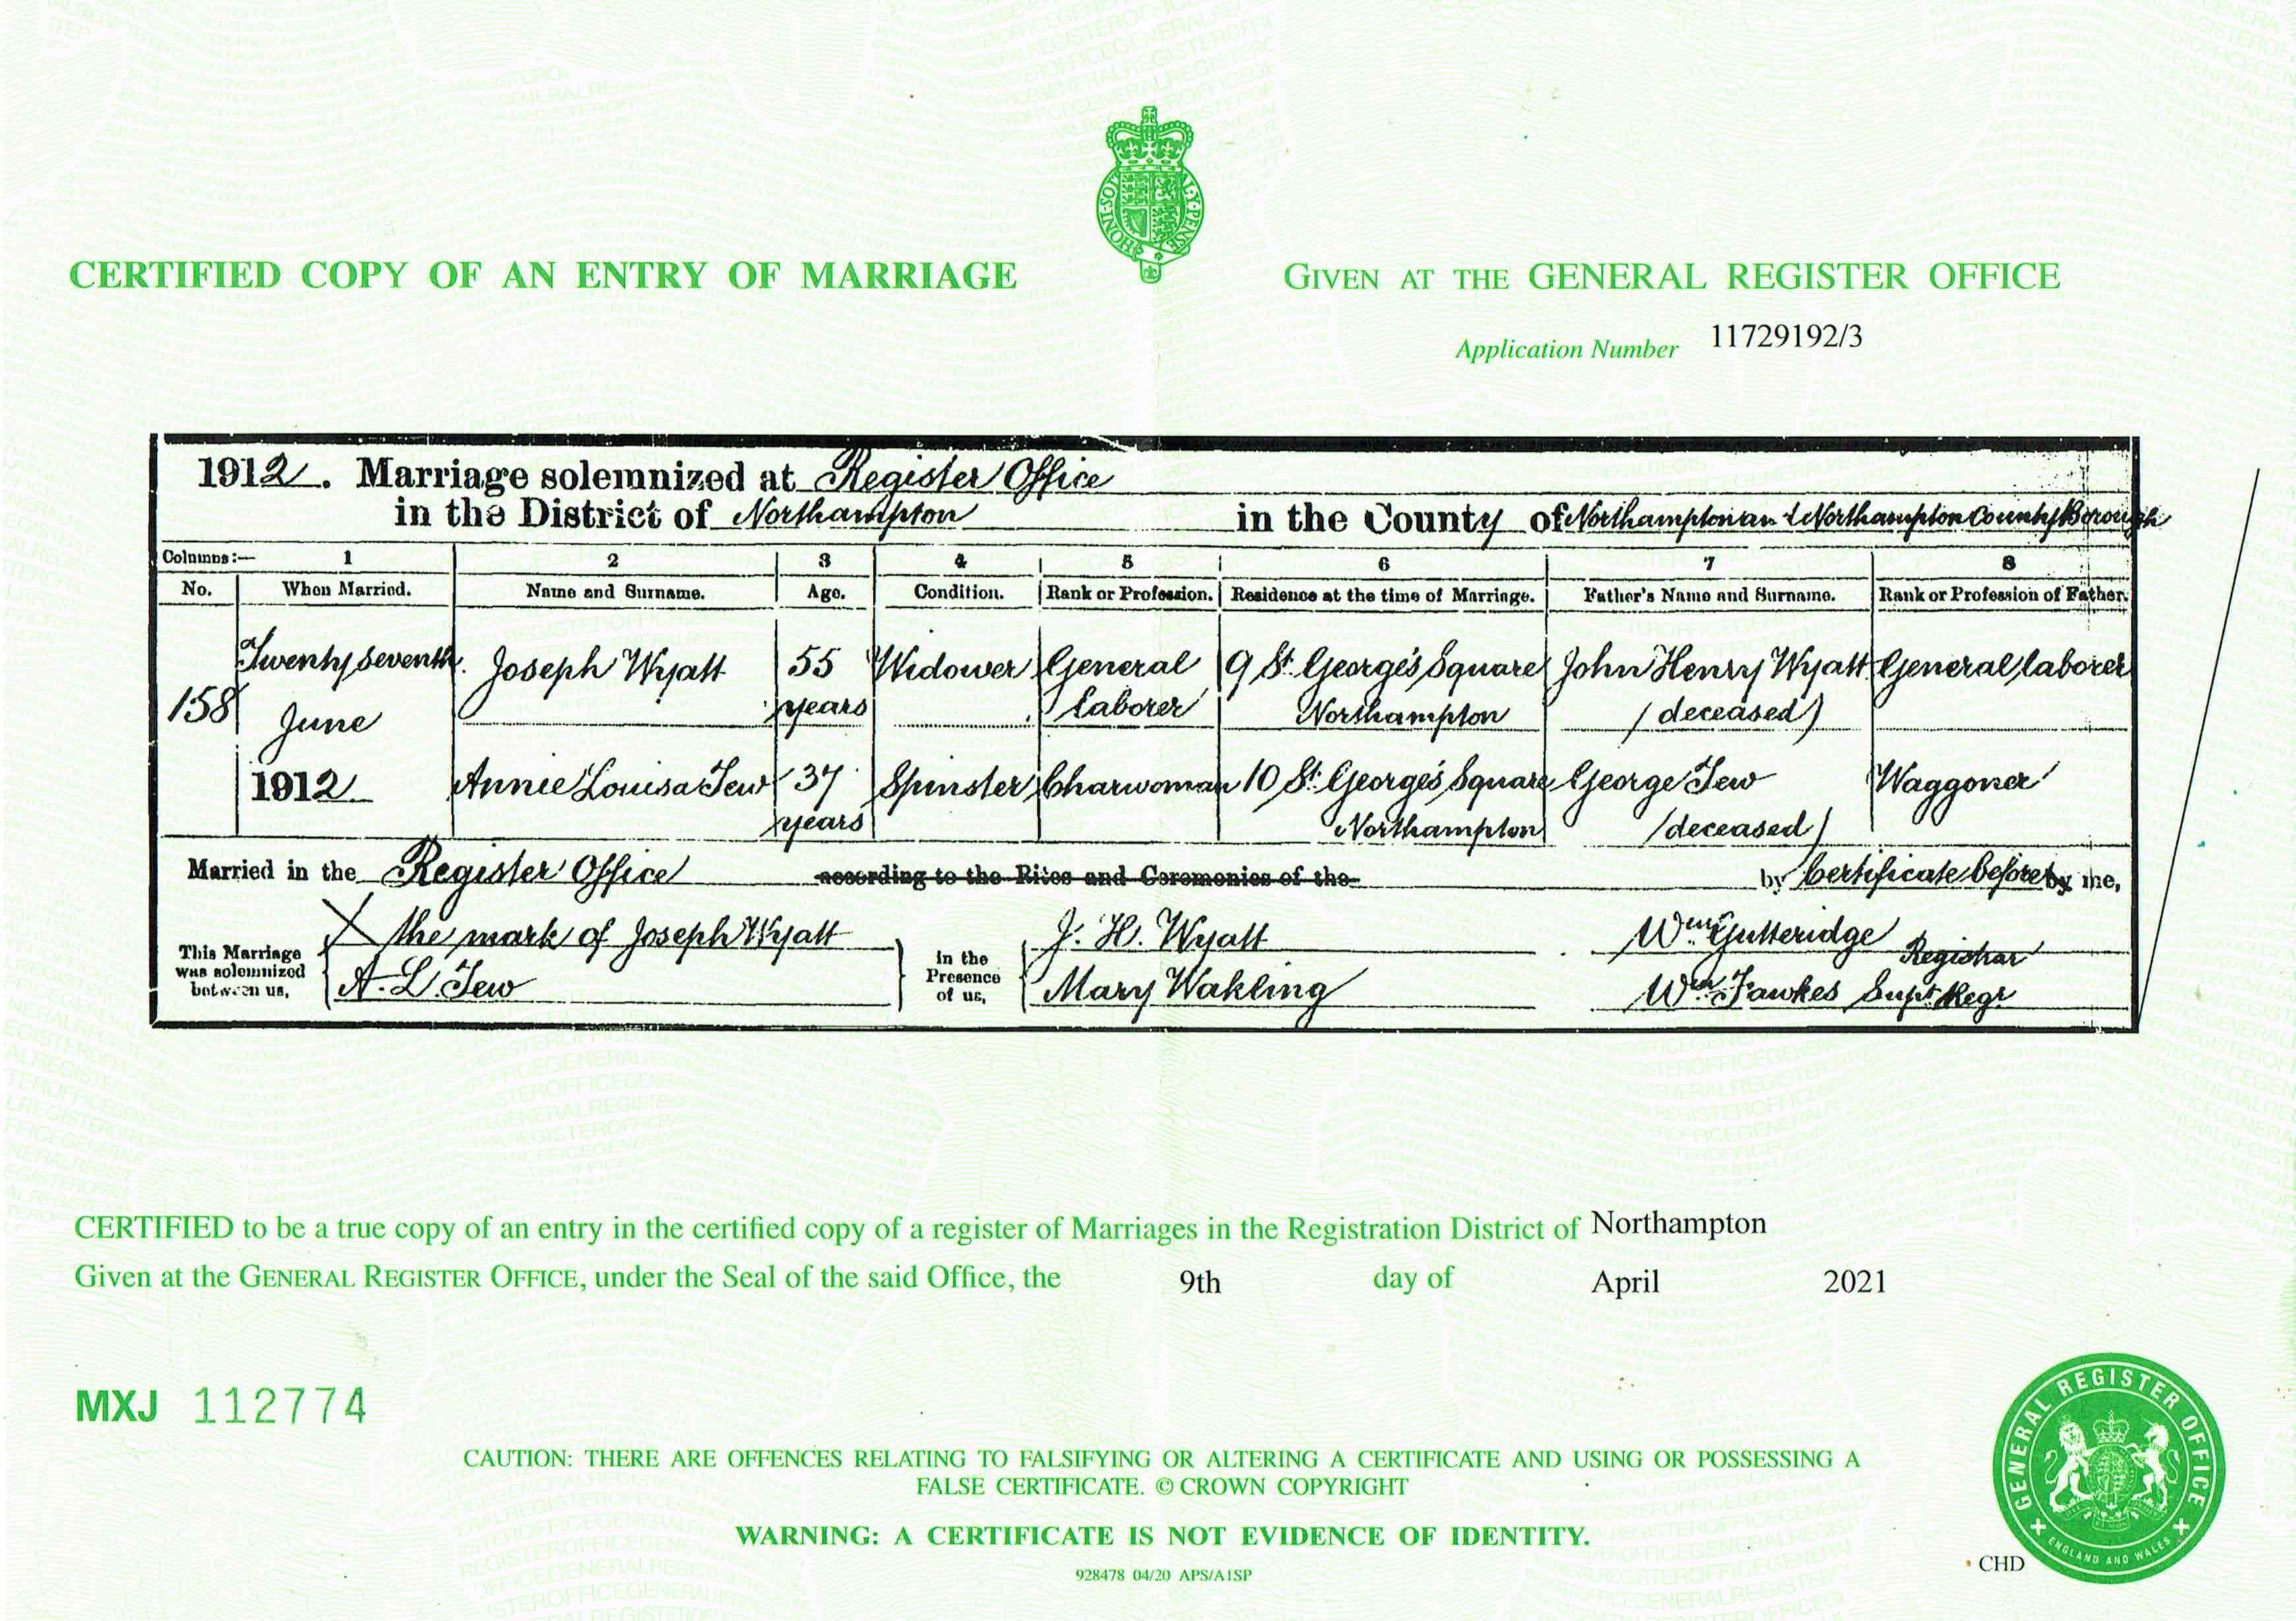 HONI·SOI AL·Y·PENSE
CERTIFIED COPY OF AN ENTRY OF MARRIAGE
GIVEN AT THE GENERAL REGISTER OFFICE
Application Number 11729192/3
1912. Marriage solemnized at Register Office
in the District of Northampton in the County of Northampton and Northampton County Borough
Columns:— 1 2 3 4 5 6 7 8
No. When Married. Name and Surname. Age. Condition. Rank or Profession. Residence at the time of Marriage. Father's Name and Surname. Rank or Profession of Father.
Twenty seventh Joseph Wyatt 55 Widower General 9 St. George's Square John Henry Wyatt General laborer
158 June years laborer Northampton (deceased)
1912 Annie Louisa Tew 37 Spinster Charwoman 10 St. George's Square George Tew Waggoner
years Northampton (deceased)
Married in the Register Office according to the Rites and Ceremonies of the by Certificate before by me,
This Marriage was solemnized between us, X the mark of Joseph Wyatt
A. L. Tew
in the Presence of us, J. H. Wyatt
Mary Wakling
Wm Gutteridge Registrar
Wm Fawkes Supt Regr
CERTIFIED to be a true copy of an entry in the certified copy of a register of Marriages in the Registration District of Northampton
Given at the GENERAL REGISTER OFFICE, under the Seal of the said Office, the 9th day of April 2021
MXJ 112774
CAUTION: THERE ARE OFFENCES RELATING TO FALSIFYING OR ALTERING A CERTIFICATE AND USING OR POSSESSING A
FALSE CERTIFICATE. © CROWN COPYRIGHT
WARNING: A CERTIFICATE IS NOT EVIDENCE OF IDENTITY.
928478 04/20 APS/A1SP
CHD
GENERAL REGISTER OFFICE
ENGLAND AND WALES